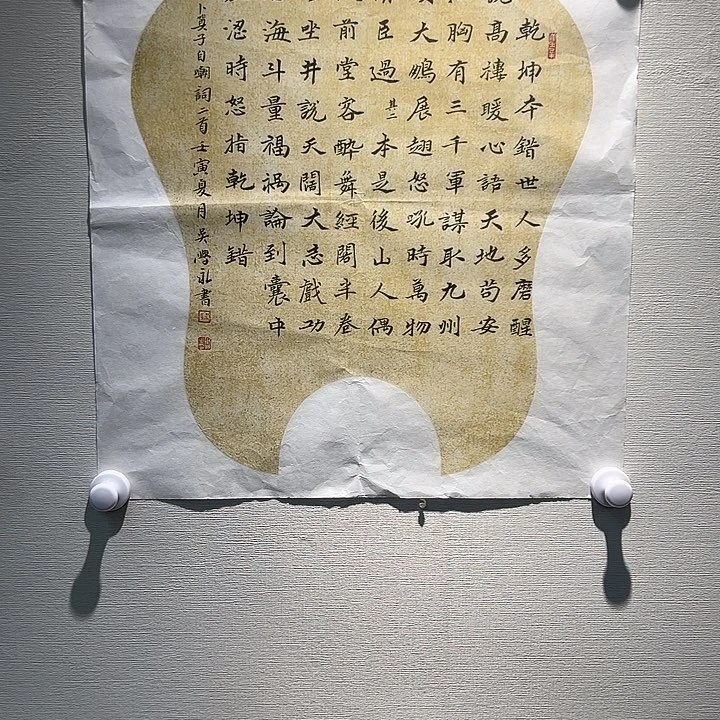 乾坤本錯世人多磨醒
高樓暖心語天地苟安
胸有三千軍謀取九州
大鵬展翅怒吼時萬物
臣過其二本是後山人偶
前堂客醉舞經閣半卷
坐井説天闊大志戲功
海斗量禍福論到囊中
涊時怒指乾坤錯
卜算子自嘲詞二首壬寅夏月吳學永書